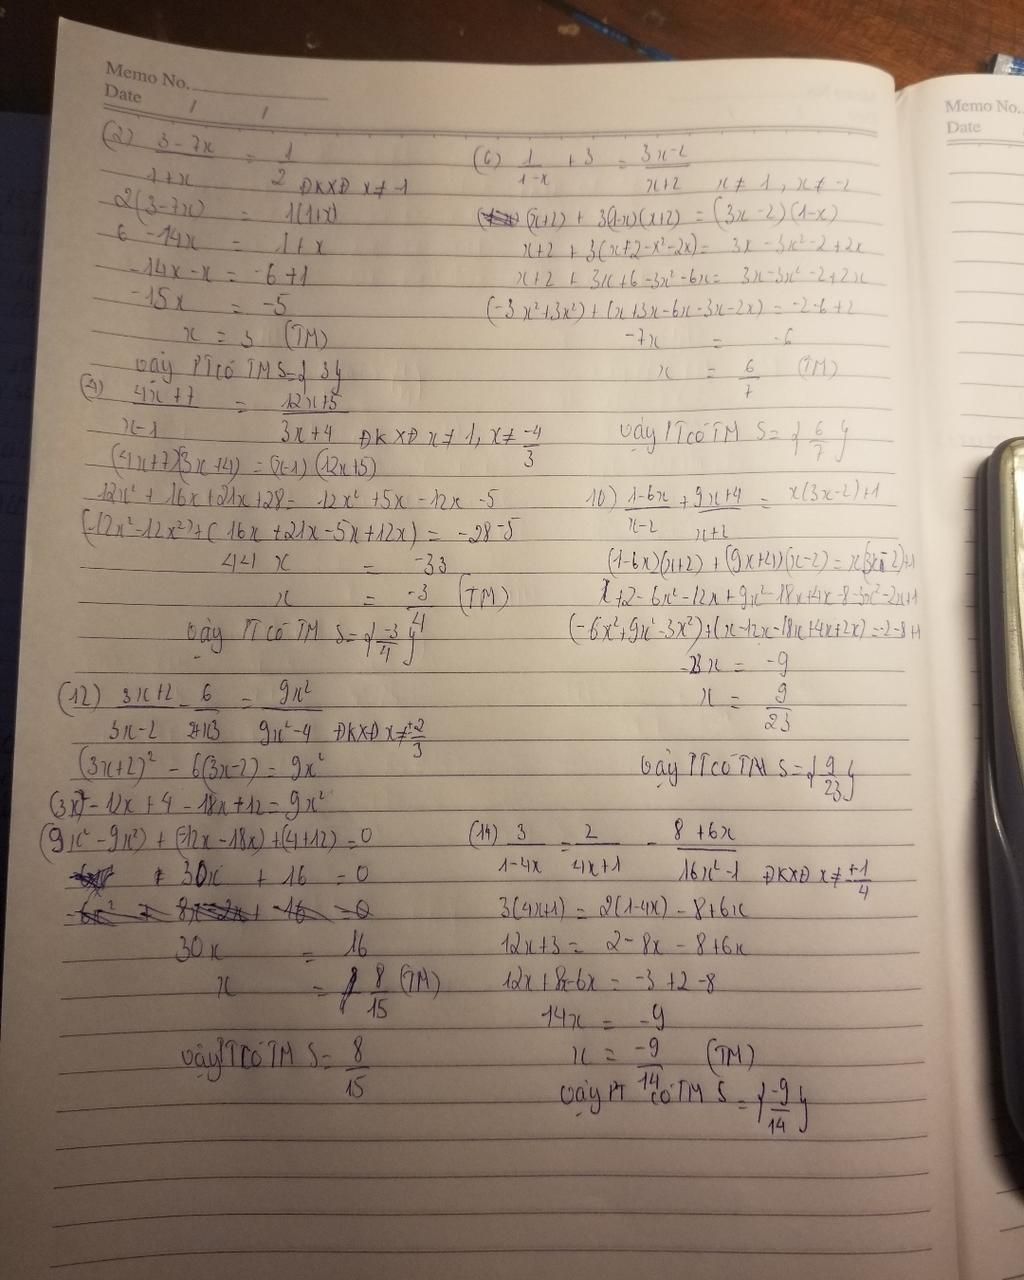 Memo No.
Date / /
(2) 3-7x/1+x = 1/2 ĐKXĐ x≠-1
2(3-7x) = 1(1+x)
6 -14x = 1+x
-14x-x = -6+1
-15x = -5
x = 3 (TM)
Vậy PT có TM S={3}
(4) 4x+7/x-1 = 12x+5/3x+4 ĐKXĐ x≠1, x≠-4/3
(4x+7)(3x+4) = (x-1)(12x+5)
12x² + 16x+21x+28= 12x² +5x -12x -5
(12x²-12x²)+( 16x +21x-5x+12x) = -28-5
44 x = -33
x = -3/4 (TM)
Vậy PT có TM S={-3/4}
(12) 3x+2/3x-2 - 6/2+3 = 9x²/9x²-4 ĐKXĐ x≠±2/3
(3x+2)² - 6(3x-2) = 9x²
(3x)²-12x+4-18x+12=9x²
(9x²-9x²) + (-12x-18x)+(4+12)=0
30x + 16 = 0
30x = 16
x = 8/15 (TM)
Vậy PT có TM S= 8/15
(6) 1/1-x +3 = 3x-2/x+2 x≠1, x≠-2
(x+2) + 3(1-x)(x+2) = (3x-2)(1-x)
x+2 + 3(x+2-x²-2x)= 3x-3x²-2+2x
x+2 + 3x+6-3x²-6x= 3x-3x²-2+2x
(-3x²+3x²)+(x+3x-6x-3x-2x) = -2-6+2
-7x = -6
x = 6/7 (TM)
Vậy PT có TM S={6/7}
10) 1-6x/x-2 + 9x+4/x+2 = x(3x-2)+1
(1-6x)(x+2) + (9x+4)(x-2) = x(3x-2)+1
x+2-6x²-12x+9x²-18x+4x-8-3x²-2x+1
(-6x²+9x²-3x²)+(x-12x-18x+4x+2x)=-2-8+1
-23x = -9
x = 9/23
Vậy PT có TM S={9/23}
(14) 3/1-4x = 2/4x+1 - 8+6x/16x²-1 ĐKXĐ x≠±1/4
3(4x+1) = 2(1-4x) -8+6x
12x+3 = 2-8x-8+6x
12x+8x-6x = -3+2-8
14x = -9
x = -9/14 (TM)
Vậy PT có TM S={-9/14}
Memo No.
Date